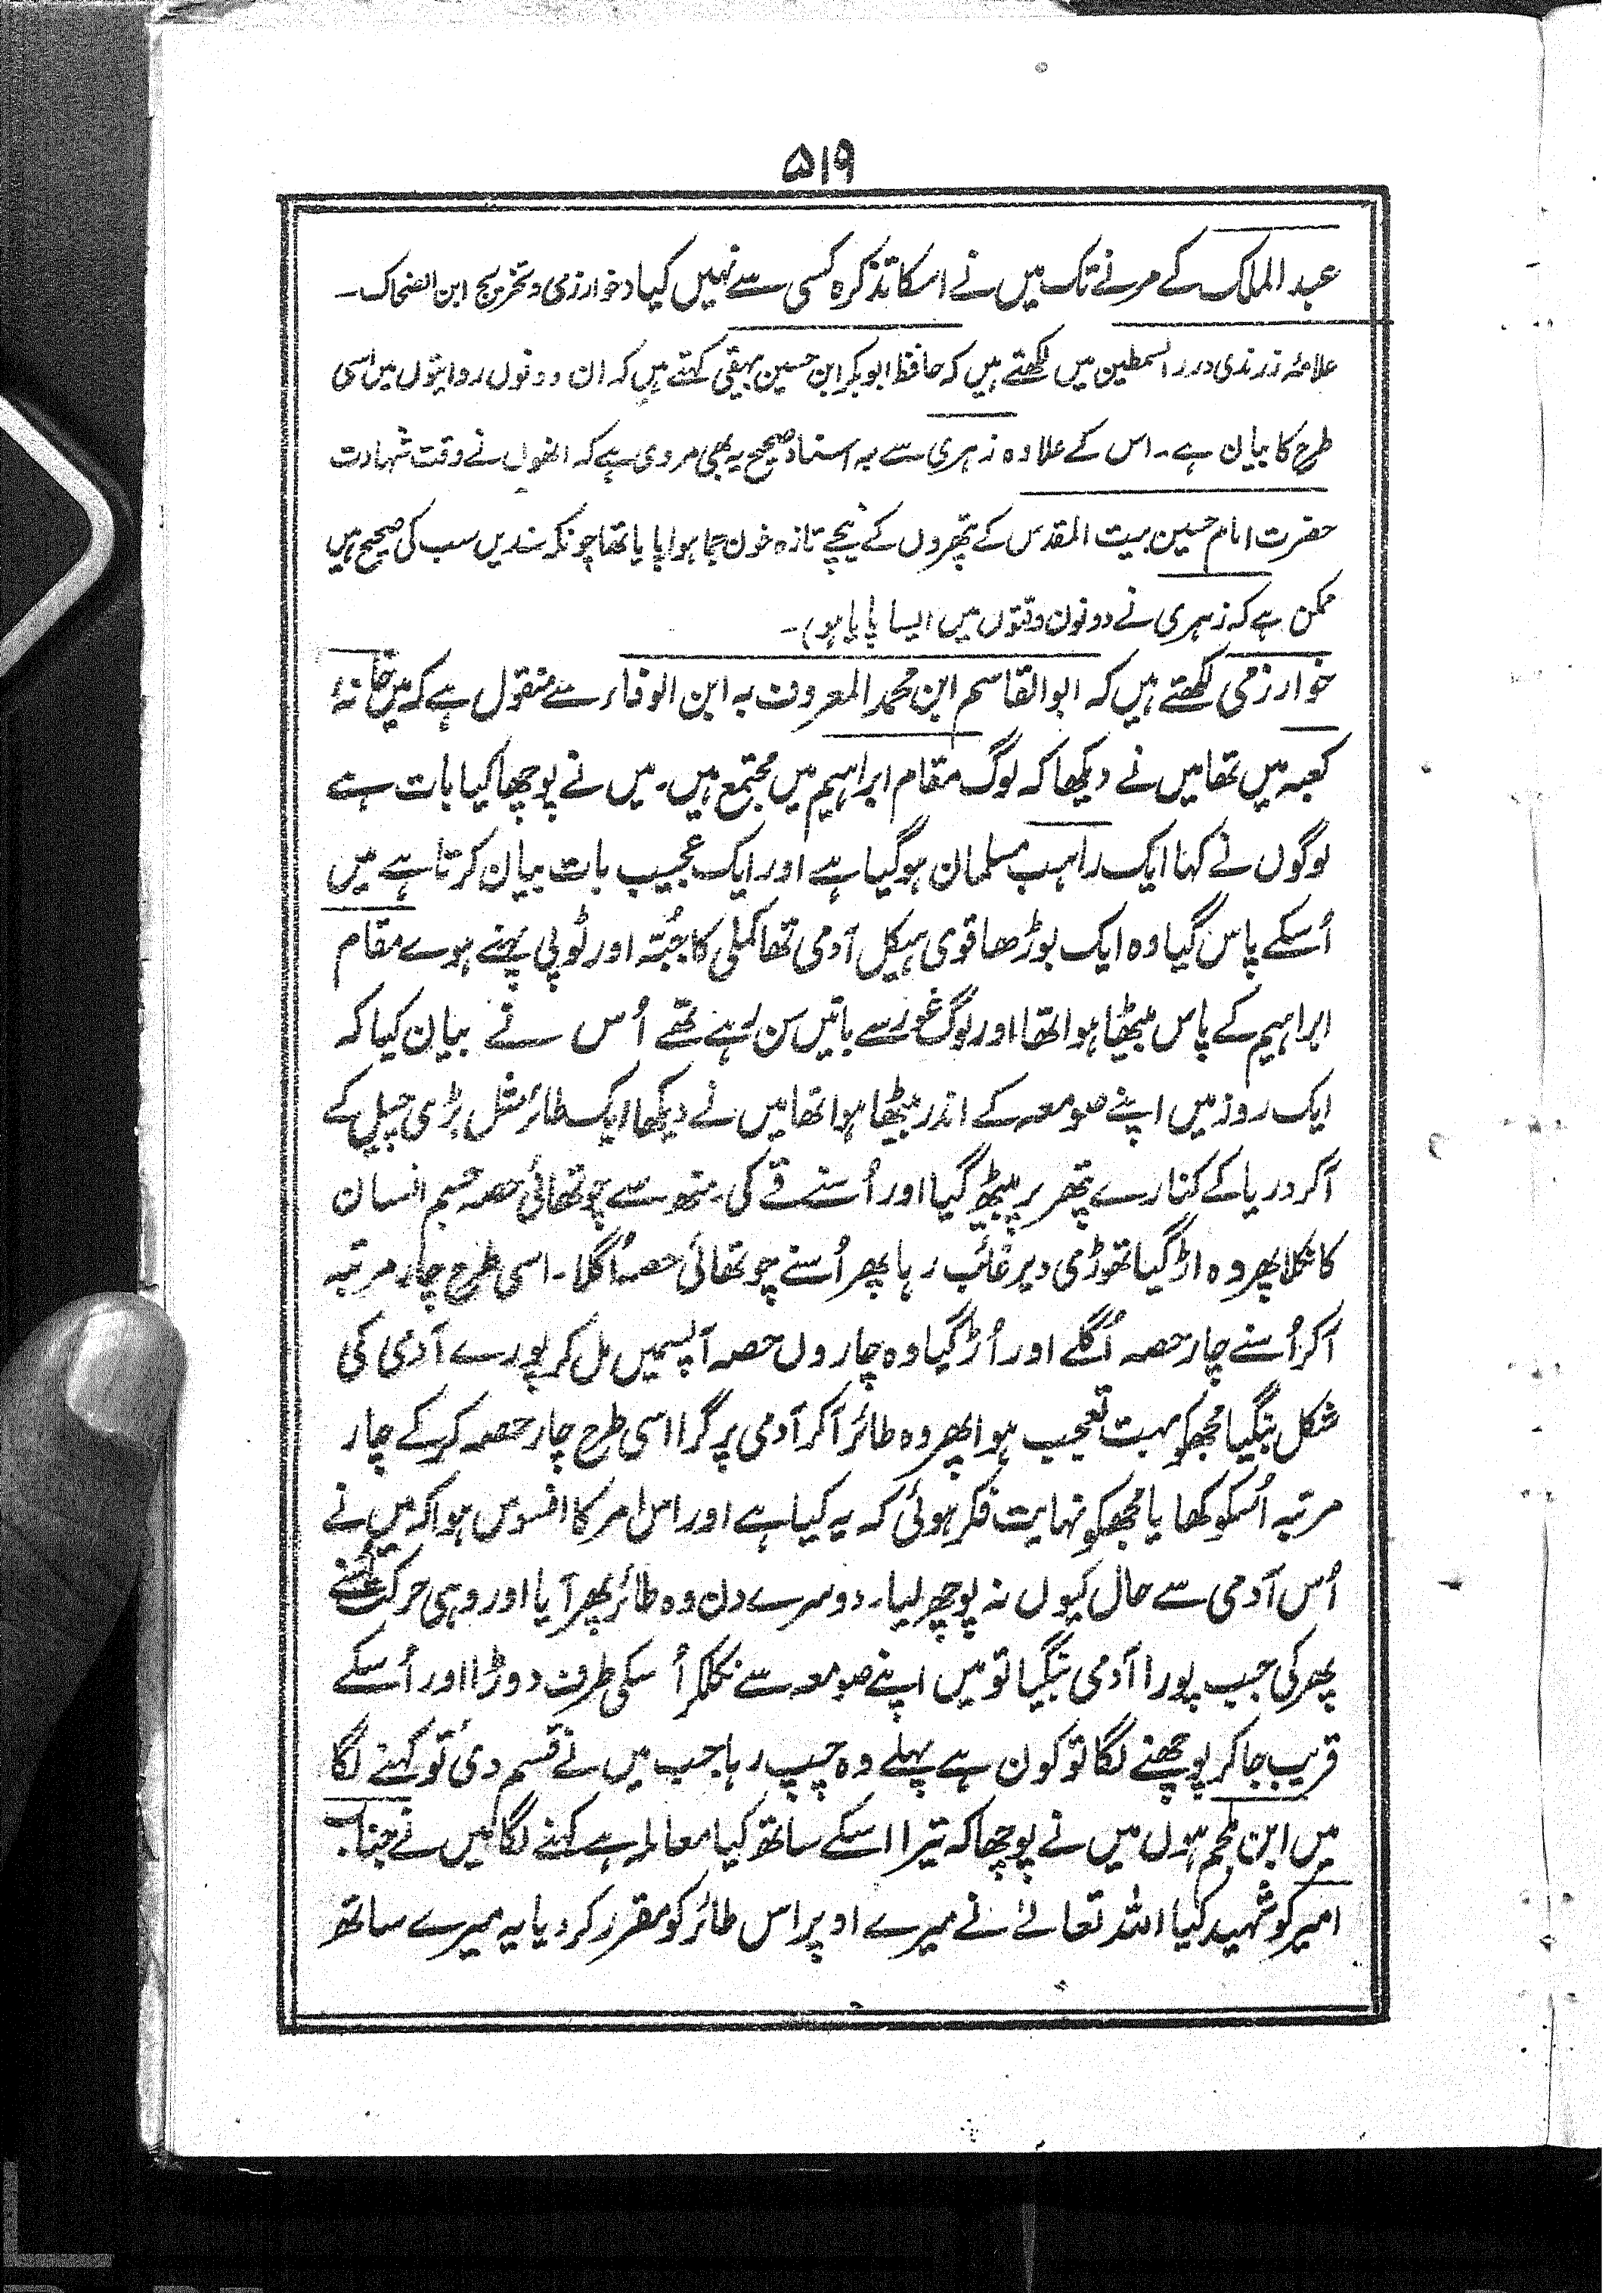 ۵۱۹
عبد الملک کے مرنے تک میں نے اسکا تذکرہ کسی سے نہیں کیا دخوارزمی وتخریج ابن الضحاک۔
علامۂ زرندی درر السمطین میں لکھتے ہیں کہ حافظ ابوبکر ابن حسین بیہقی کہتے ہیں کہ ان دونوں روایتوں میں اسی
طرح کا بیان ہے۔ اس کے علاوہ زہری سے بہ اسناد صحیح یہ بھی مروی ہے کہ انھوں نے وقت شہادت
حضرت امام حسین بیت المقدس کے پتھروں کے نیچے تازہ خون جما ہوا پایا تھا چونکہ سندیں سب کی صحیح ہیں
ممکن ہے کہ زہری نے دونوں وقتوں میں ایسا پایا ہو)۔
خوارزمی لکھتے ہیں کہ ابوالقاسم ابن محمد المعروف بہ ابن الوفاء سے منقول ہے کہ میں خانۂ
کعبہ میں تھا میں نے دیکھا کہ لوگ مقام ابراہیم میں مجتمع ہیں۔ میں نے پوچھا کیا بات ہے
لوگوں نے کہا ایک راہب مسلمان ہوگیا ہے اور ایک عجیب بات بیان کرتا ہے میں
اُسکے پاس گیا وہ ایک بوڑھا قوی ہیکل آدمی تھا کملی کا جُبّہ اور ٹوپی پہنے ہوے مقام
ابراہیم کے پاس بیٹھا ہوا تھا اور لوگ غور سے باتیں سن رہے تھے اُس نے بیان کیا کہ
ایک روز میں اپنے صومعہ کے اندر بیٹھا ہوا تھا میں نے دیکھا ایک طائر مثل بڑی چیل کے
آکر دریا کے کنارے پتھر پر بیٹھ گیا اور اُسنے قے کی۔ منھ سے چوتھائی حصہ جسم انسان
کا نکلا پھر وہ اڑ گیا تھوڑی دیر غائب رہا پھر اُسنے چوتھائی حصہ اُگلا۔ اسی طرح چار مرتبہ
آکر اُسنے چار حصہ اُگلے اور اُڑ گیا وہ چاروں حصہ آپسمیں مل کر پورے آدمی کی
شکل بنگیا مجھکو بہت تعجب ہوا پھر وہ طائر آکر آدمی پر گرا اسی طرح چار حصہ کرکے چار
مرتبہ اُسکو کھایا مجھکو نہایت فکر ہوئی کہ یہ کیا ہے اور اس امر کا افسوس ہوا کہ میں نے
اُس آدمی سے حال کیوں نہ پوچھ لیا۔ دوسرے دن وہ طائر پھر آیا اور وہی حرکت اُسنے
پھر کی جب پورا آدمی بنگیا تو میں اپنے صومعہ سے نکلکر اُسکی طرف دوڑا اور اُسکے
قریب جاکر پوچھنے لگا تو کون ہے پہلے وہ چپ رہا جب میں نے قسم دی تو کہنے لگا
میں ابن ملجم ہوں میں نے پوچھا کہ تیرا اسکے ساتھ کیا معاملہ ہے کہنے لگا میں نے جناب
امیر کو شہید کیا اللہ تعالےٰ نے میرے اوپر اس طائر کو مقرر کردیا یہ میرے ساتھ